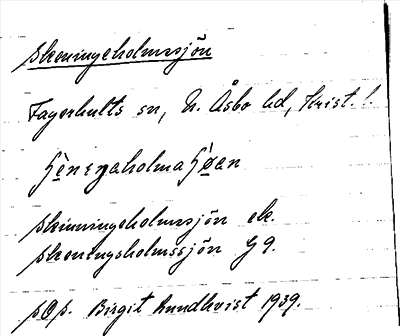 Skeningeholmssjön
Fagerhults sn, N. Åsbo hd, Krist. l.
ɧènɩŋaholmaɧøan
Skinningeholmssjön ek.
Skeningsholmssjön G 9.
pOp. Birgit Lundkvist 1939.